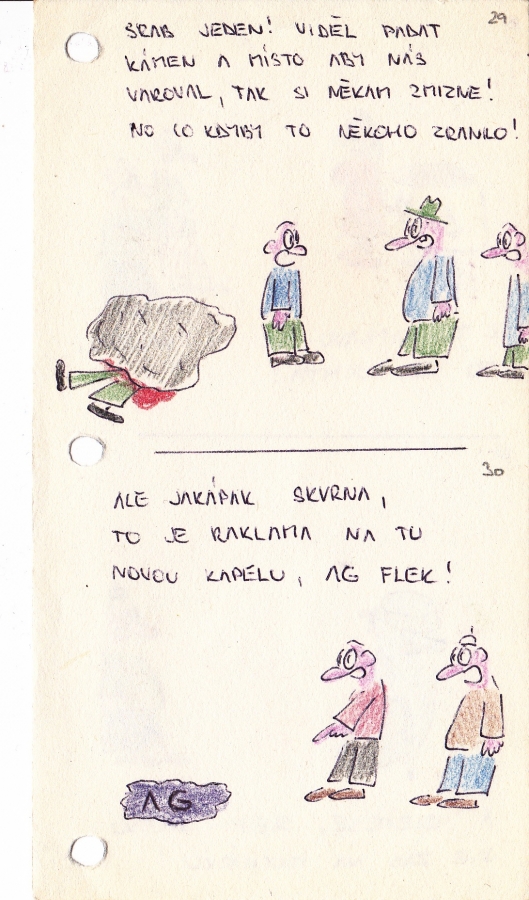 29
SRAB JEDEN! VIDĚL PADAT
KÁMEN A MÍSTO ABY NÁS
VAROVAL, TAK SI NĚKAM ZMIZNE!
NO CO KDYBY TO NĚKOHO ZRANILO!
30
ALE JAKÁPAK SKVRNA,
TO JE RAKLAMA NA TU
NOVOU KAPELU, AG FLEK!
AG